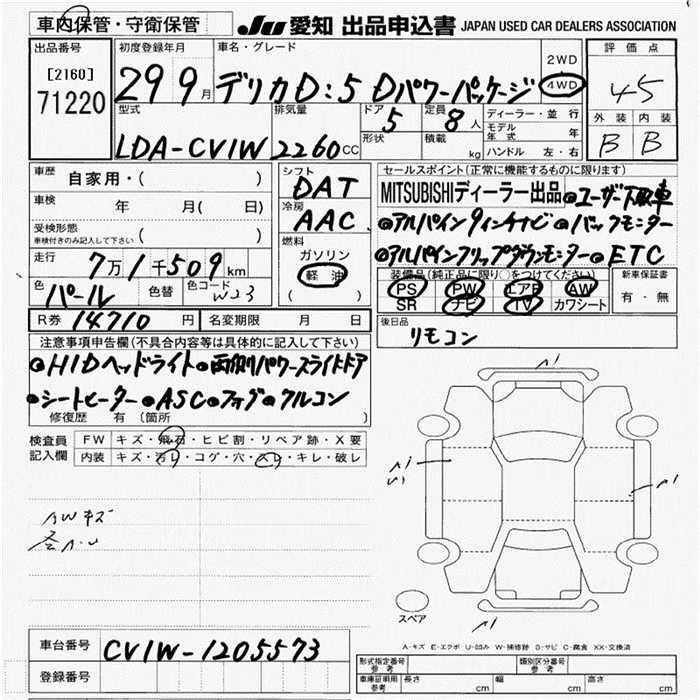 車内保管・守衛保管
JU 愛知 出品申込書 JAPAN USED CAR DEALERS ASSOCIATION
出品番号 初度登録年月 車名・グレード 評価点
[2160]
71220
29 9月 デリカD:5 Dパワーパッケージ 2WD 4WD 45
型式 排気量 ドア 定員 ディーラー・並行 外装 内装
LDA-CV1W 2260cc 5 8人 モデル年式 年 B B
形状 積載 kg ハンドル 左・右
車歴 自家用・( ) シフト DAT
車検 年 月( 日) 冷房 AAC
受検形態
車検付きのみ記入して下さい ( )
燃料 ガソリン 軽油 ( )
走行 7万1千509km
色 パール 色替 色コード W23
R券 14710円 名変期限 月 日
セールスポイント(正常に機能するものに限ります)
MITSUBISHIディーラー出品 ●ユーザー下取車
●アルパイン9インチナビ ●バックモニター
●アルパインフリップダウンモニター ●ETC
装備品(純正品に限り○をつけてください) 新車保証書
PS PW エアB AW 有・無
SR ナビ TV カワシート
後日品 リモコン
注意事項申告欄(不具合内容等は具体的に記入して下さい)
●HIDヘッドライト ●両側パワースライドドア
●シートヒーター ●ASC ●フォグ ●クルコン
修復歴 有(箇所 )
検査員記入欄 FW キズ・飛石・ヒビ割・リペア跡・X要
内装 キズ・汚レ・コゲ・穴・スレ・キレ・破レ
AWキズ
A1
A1
A1
スペア
A1
A-キズ E-エクボ U-凹み W-補修跡 S-サビ C-腐食 XX-交換済
車台番号 CV1W-1205573
登録番号
形式指定番号 参考 類別区分番号 参考
車庫証明用 参考 長さ cm 幅 cm 高さ cm